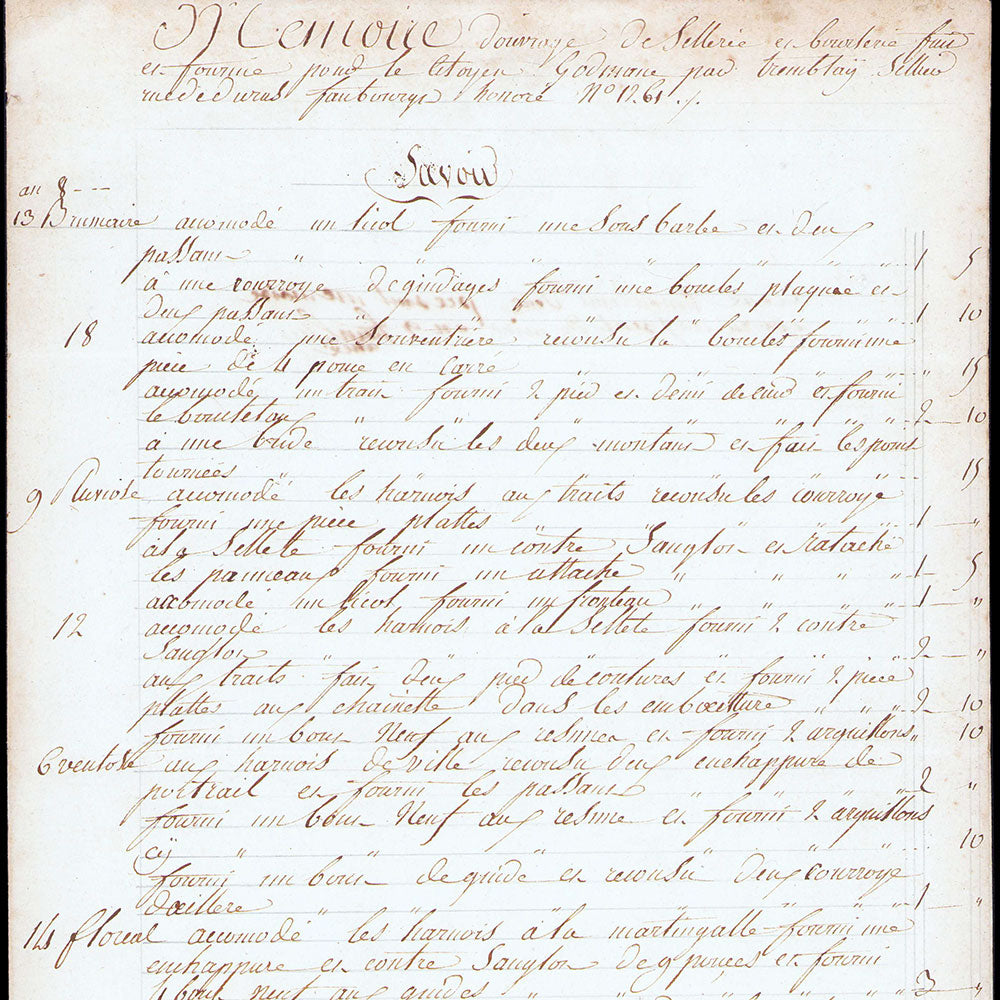 Memoire douvrage de Sellerie et bourlerie fait
et fournie pour le Citoyen Godmane par tremblay Sellier
faubourgs honoré No 1261
Savoir
an 8
13 Brumaire acomodé un licol fourni une Sous barbe et deux
passans " " " " " 1 5
à une courroye de guidages fourni une boucles plaquée et
deux passans 1 10
18 acomodé une Souventriere recousu la boucles fourni une
pièce de 4 pouce en Carré " 15
acomodé un trait fourni 2 pied et demi de cuir et fourni
le boucleteau " " " " " 2 10
à une bride recousu les deux montans et fait les points
tournées 15
9 Pluviose acomodé les harnois aux traits recousu les courroye
fourni une pièce plattes 1 "
à la Sellete fourni un contre Sanglon et ratache
les panneaux fourni un attache " " " " 1 5
accomodé un licol fourni un fronteau " " " " 1 "
12 acomodé les harnois à la Sellete fourni 2 contre
Sanglon 2 "
aux traits fait deux pied de coutures et fourni 2 pièce
plattes aux chainette dans les emboetture " " " 2 10
fourni un bout Neuf aux resnes et fourni 2 arguillons " 10
6 ventose aux harnois de ville recousu deux enchappure de
poitrail et fourni les passans " " " 2 "
fourni un bout Neuf aux resme et fourni 2 arguillons
cy " " " " " 10
fourni un bout de guide et recousu deux courroye
dœillere " " " " 1 "
14 floreal accomodé les harnois à la martingalle fourni une
enchappure et contre Sanglon de 9 pouces et fourni
4 bout neuf aux guides " " " 3